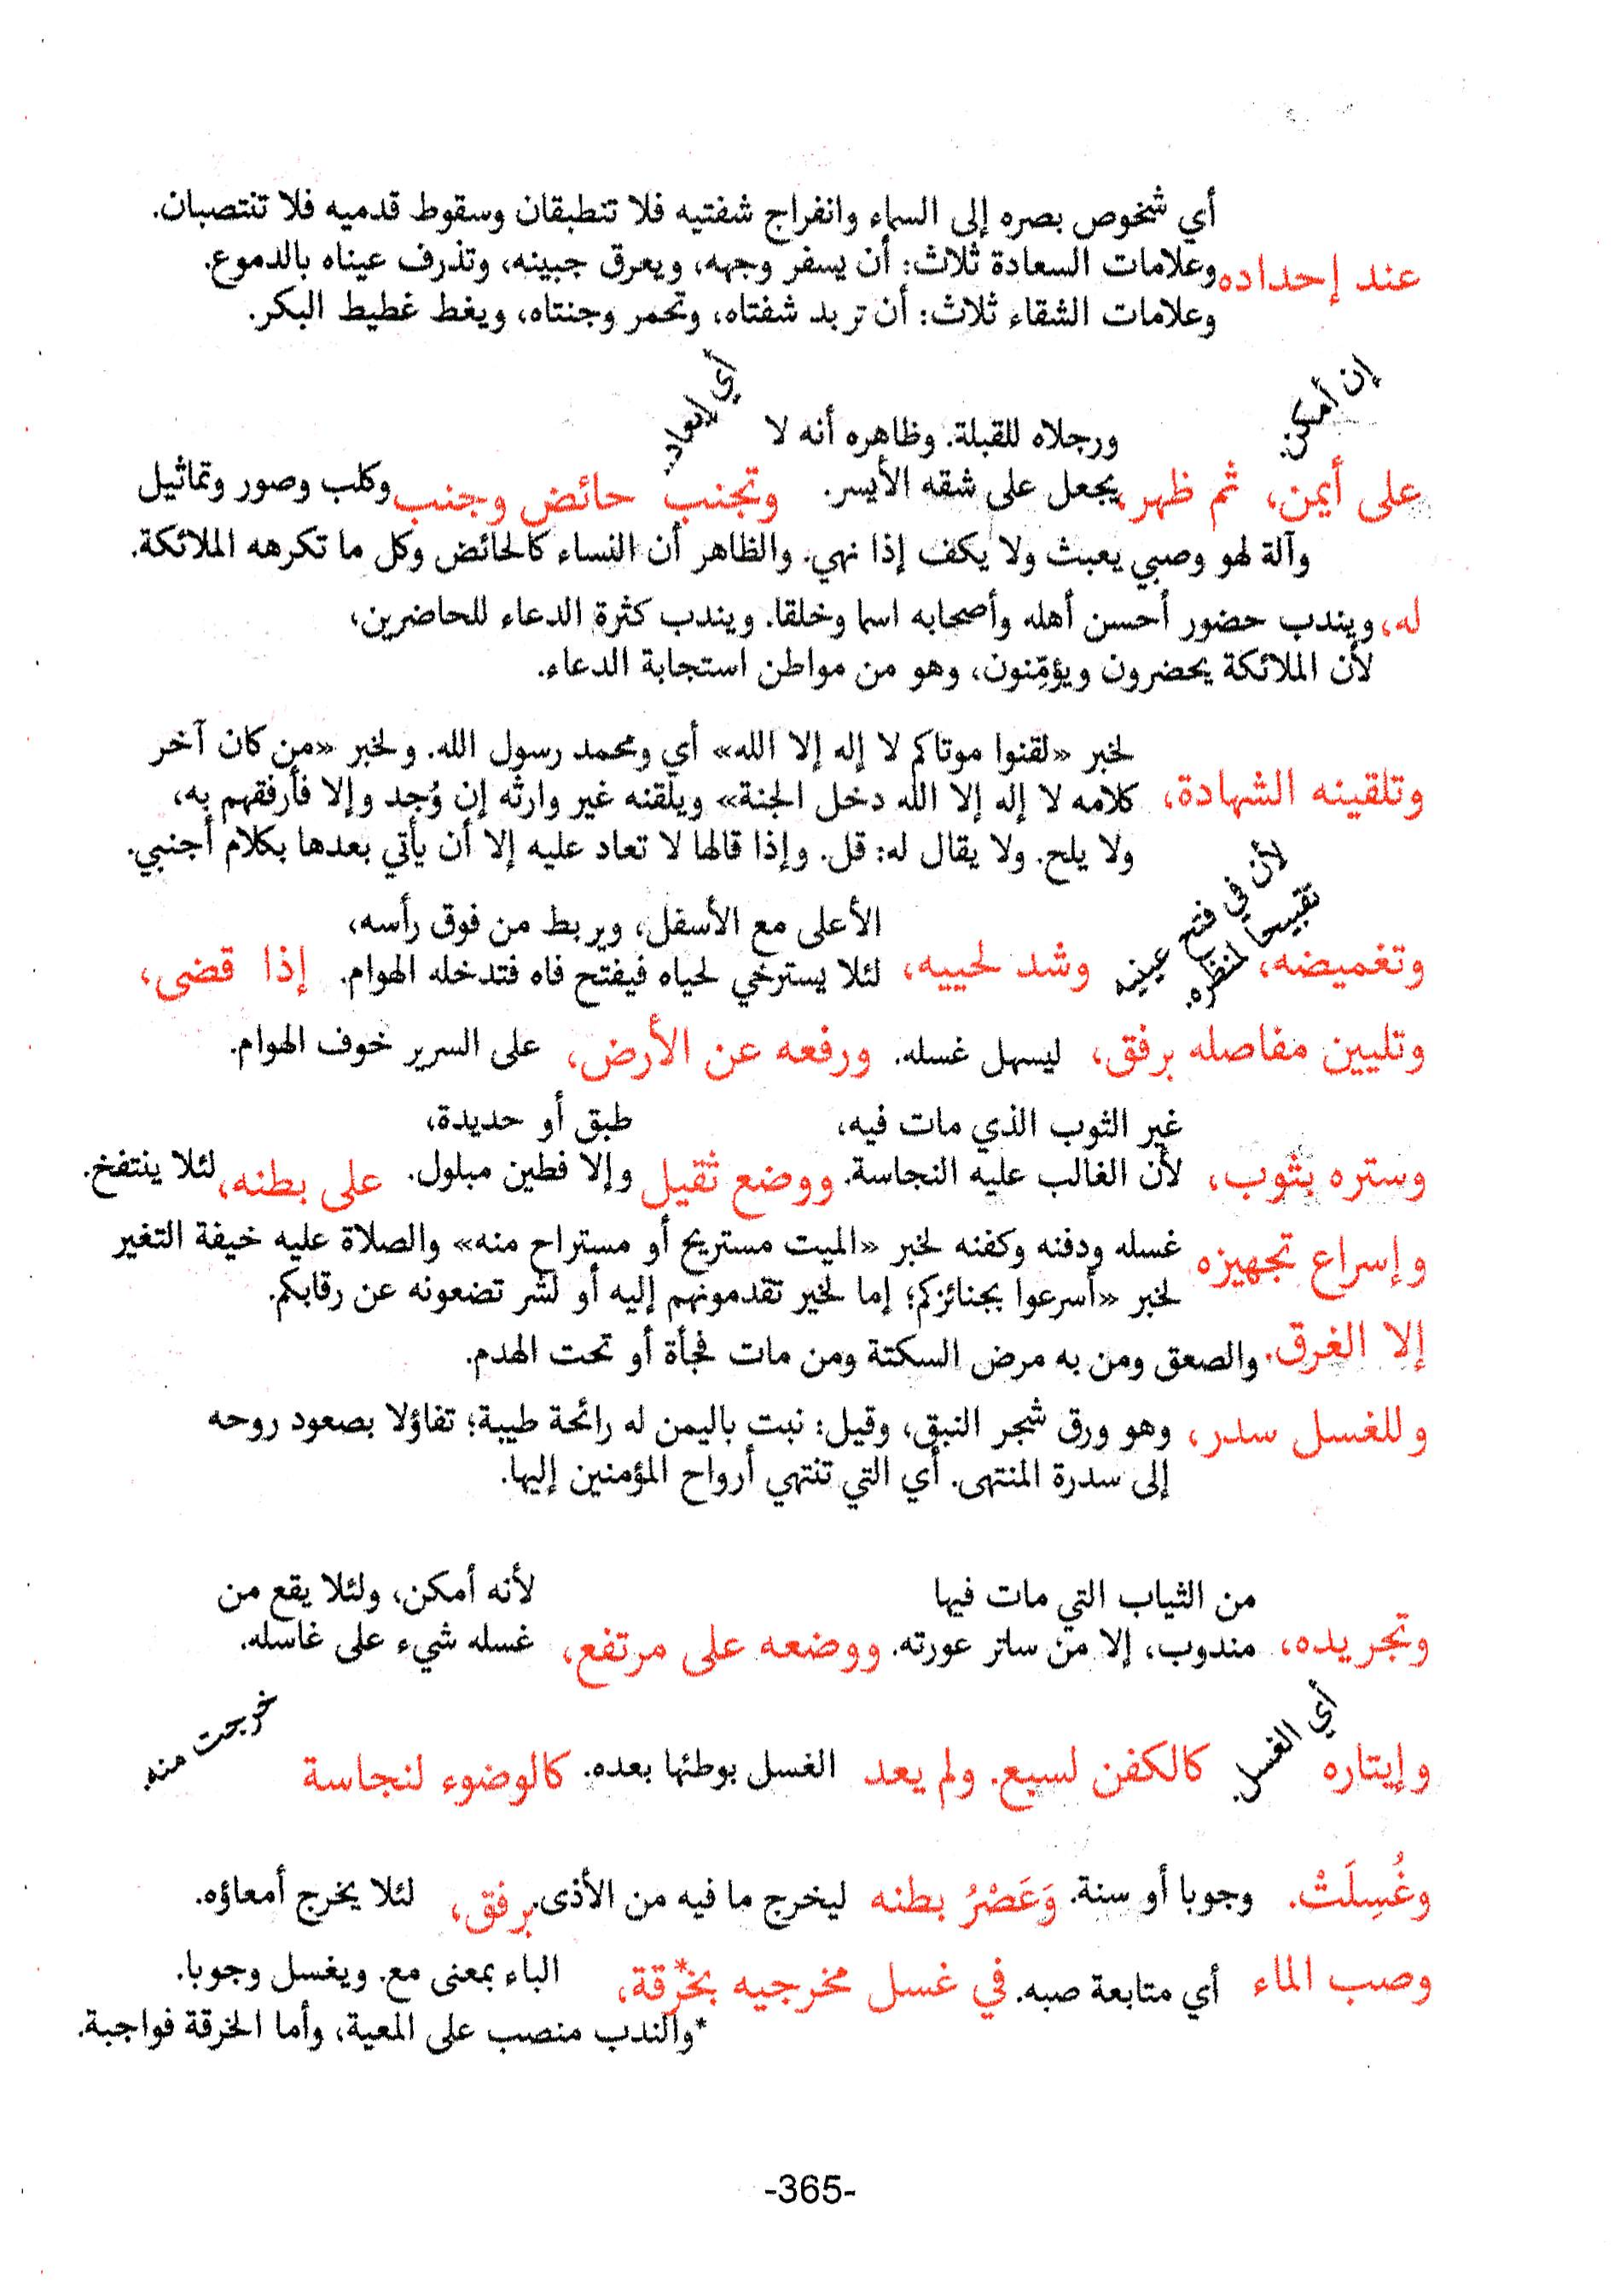 أي شخوص بصره إلى السماء وانفراج شفتيه فلا تنطبقان وسقوط قدميه فلا تنتصبان.
عند إحداده وعلامات السعادة ثلاث: أن يسفر وجهه، ويعرق جبينه، وتذرف عيناه بالدموع.
وعلامات الشقاء ثلاث: أن تربد شفتاه، وتحمر وجنتاه، ويغط غطيط البكر.
إن أمكن.
ورجلاه للقبلة. وظاهره أنه لا
على أيمن، ثم ظهر، يجعل على شقه الأيسر. وتجنب حائض وجنب وكلب وصور وتماثيل
وآلة لهو وصبي يعبث ولا يكف إذا نهي. والظاهر أن النساء كالحائض وكل ما تكرهه الملائكة.
له، ويندب حضور أحسن أهله وأصحابه اسما وخلقا. ويندب كثرة الدعاء للحاضرين،
لأن الملائكة يحضرون ويؤمِّنون، وهو من مواطن استجابة الدعاء.
لخبر «لقنوا موتاكم لا إله إلا الله» أي ومحمد رسول الله. ولخبر «من كان آخر
وتلقينه الشهادة، كلامه لا إله إلا الله دخل الجنة» ويلقنه غير وارثه إن وُجد وإلا فأرفقهم به،
ولا يلح. ولا يقال له: قل. وإذا قالها لا تعاد عليه إلا أن يأتي بعدها بكلام أجنبي.
الأعلى مع الأسفل، ويربط من فوق رأسه،
وتغميضه، لأن في فتح عينيه تقبيحا لمنظره. وشد لحييه، لئلا يسترخي لحياه فيفتح فاه فتدخله الهوام. إذا قضى،
وتليين مفاصله برفق، ليسهل غسله. ورفعه عن الأرض، على السرير خوف الهوام.
غير الثوب الذي مات فيه، طبق أو حديدة،
وستره بثوب، لأن الغالب عليه النجاسة. ووضع ثقيل وإلا فطين مبلول. على بطنه، لئلا ينتفخ.
غسله ودفنه وكفنه لخبر «الميت مستريح أو مستراح منه» والصلاة عليه خيفة التغير
وإسراع تجهيزه لخبر «أسرعوا بجنائزكم؛ إما لخير تقدمونهم إليه أو لشر تضعونه عن رقابكم.
إلا الغرق. والصعق ومن به مرض السكتة ومن مات فجأة أو تحت الهدم.
وللغسل سدر، وهو ورق شجر النبق، وقيل: نبت باليمن له رائحة طيبة؛ تفاؤلا بصعود روحه
إلى سدرة المنتهى. أي التي تنتهي أرواح المؤمنين إليها.
من الثياب التي مات فيها لأنه أمكن، ولئلا يقع من
وتجريده، مندوب، إلا من ساتر عورته. ووضعه على مرتفع، غسله شيء على غاسله.
وإيتاره أي الغسل. كالكفن لسبع. ولم يعد الغسل بوطئها بعده. كالوضوء لنجاسة خرجت منه.
وغُسِلَتْ. وجوبا أو سنة. وَعَصْرُ بطنه ليخرج ما فيه من الأذى. برفق، لئلا يخرج أمعاؤه.
وصب الماء أي متابعة صبه. في غسل مخرجيه بخرقة*، الباء بمعنى مع. ويغسل وجوبا.
*والندب منصب على المعية، وأما الخرقة فواجبة.
-365-